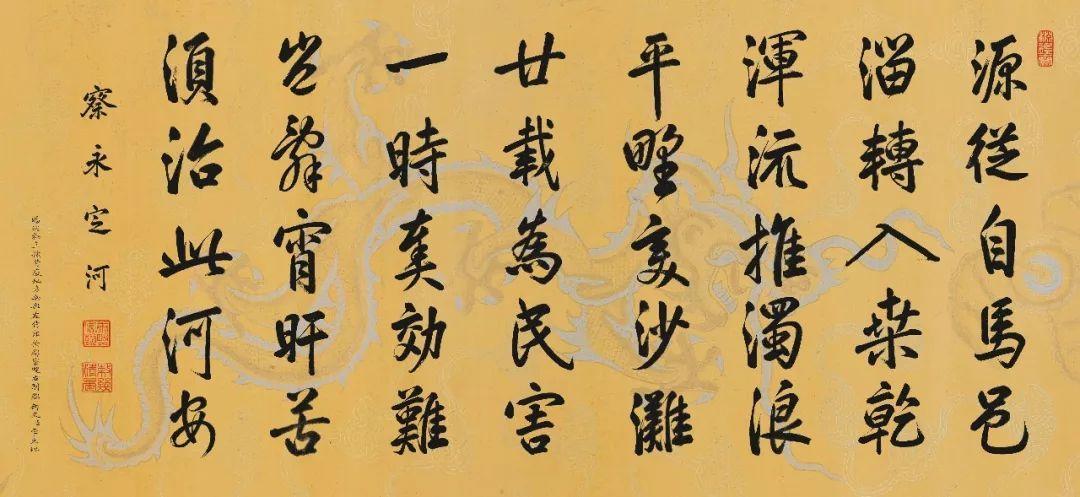 源從自馬邑
溜轉入桒乾
渾流推濁浪
平野变沙灘
廿載為民害
一時奏効難
豈辞宵旰苦
須治此河安
察永定河